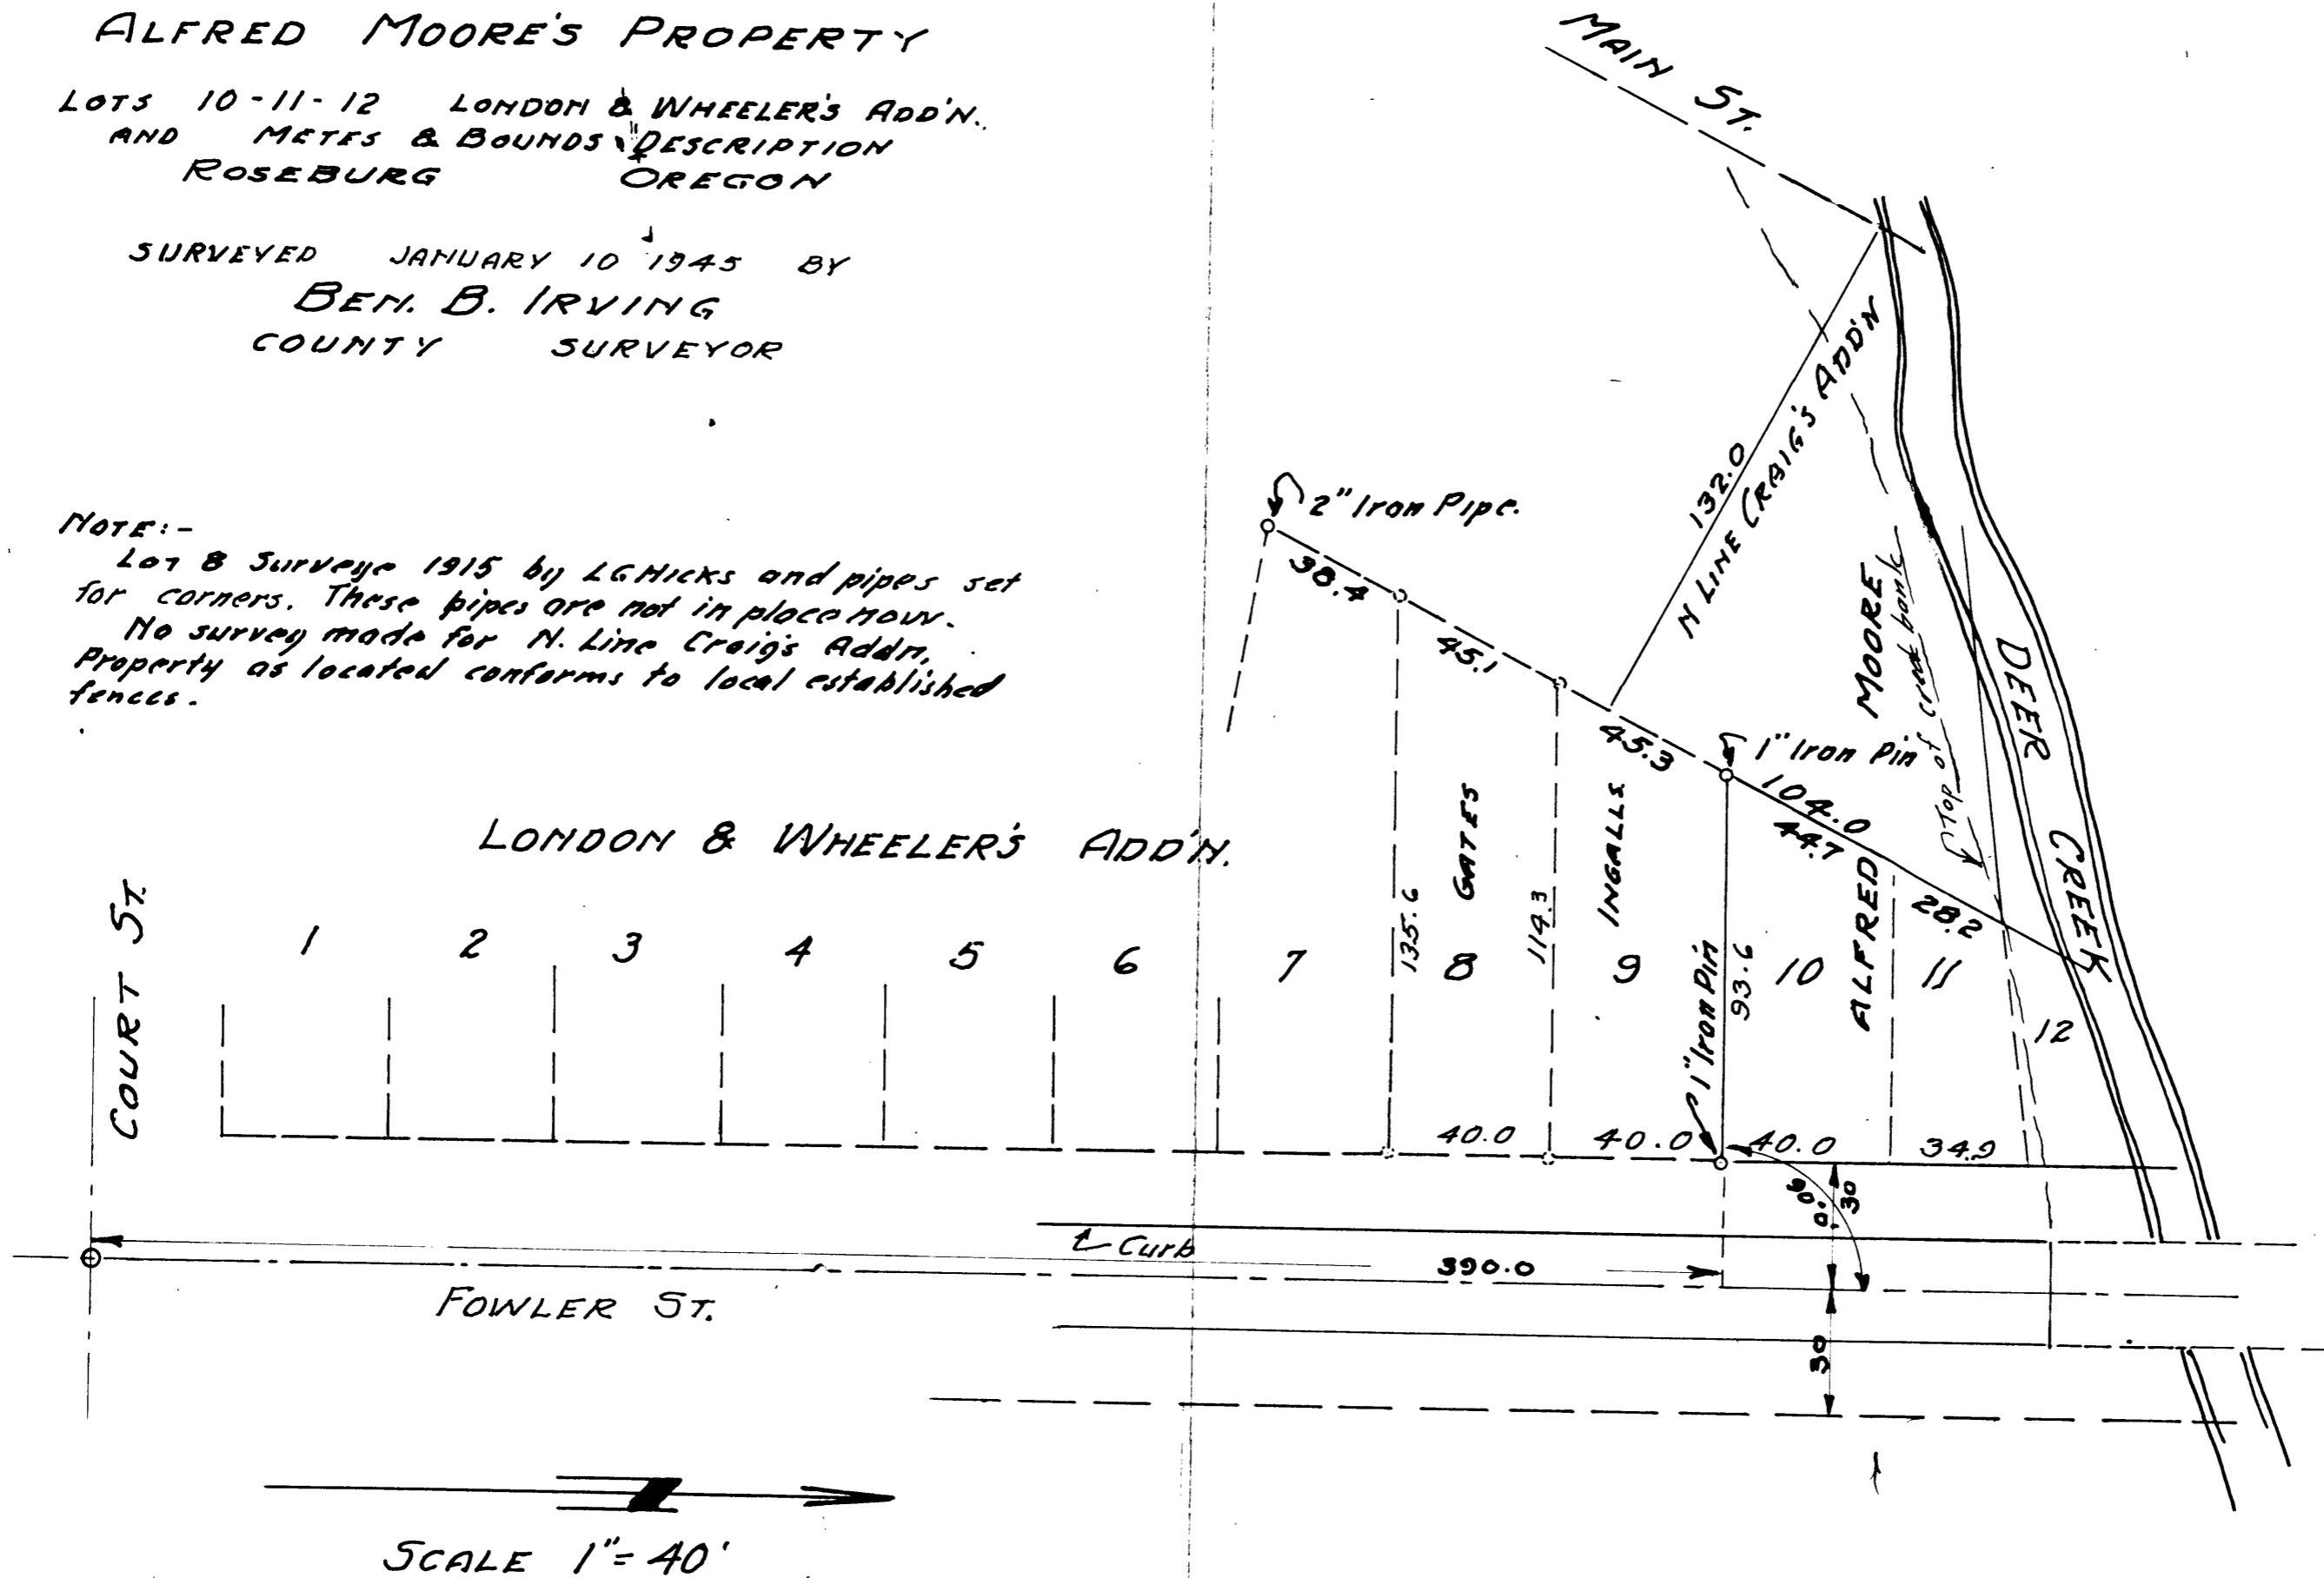 ALFRED MOORE'S PROPERTY
LOTS 10-11-12 LONDON & WHEELER'S ADD'N.
AND METES & BOUNDS DESCRIPTION
ROSEBURG OREGON
SURVEYED JANUARY 10 1945 BY
BEN. B. IRVING
COUNTY SURVEYOR
NOTE:-
Lot 8 Surveye 1915 by LG Hicks and pipes set
for corners. These pipes are not in place now.
No survey made for N. Line Craig's Addn,
Property as located conforms to local established
fences.
MAIN ST.
132.0
N LINE CRAIG'S ADD'N
2" Iron Pipe.
38.4
45.1
45.3
1" Iron Pin
104.0
44.7
28.2
ALFRED MOORE
Top of creek bank
DEER CREEK
LONDON & WHEELER'S ADD'N.
COURT ST.
1 2 3 4 5 6 7 8 9 10 11 12
135.6
GATES
114.3
INGALLS
1" Iron Pin
93.6
40.0 40.0 40.0 34.9
90° 0'
30
Curb
390.0
FOWLER ST.
30
SCALE 1"=40'